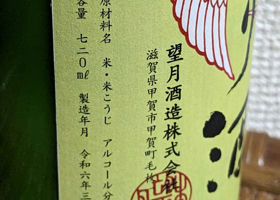 望月酒造株式会社
滋賀県甲賀市甲賀町毛枚
原材料名 米・米こうじ アルコール分
容量 七二〇ml 製造年月 令和六年三